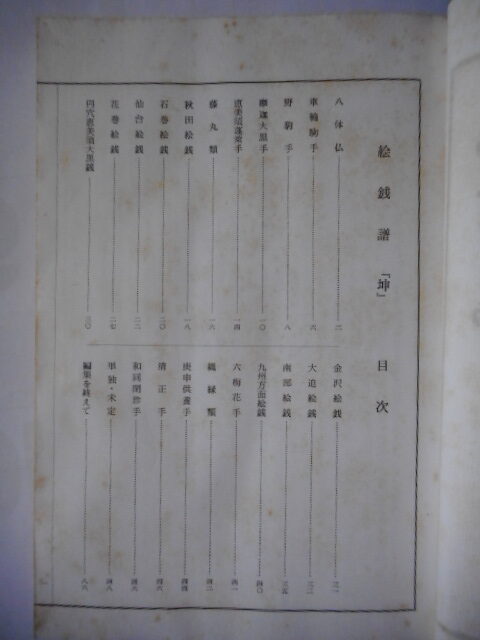 絵銭譜「坤」 目次
八体仏……二
車輪駒手……六
野駒手……八
摩迦大黒手……一〇
恵美須蓬莱手……一四
藤丸類……一六
秋田絵銭……一八
石巻絵銭……二〇
仙台絵銭……二二
花巻絵銭……二七
円穴恵美須大黒銭……三〇
金沢絵銭……三一
大迫絵銭……三三
南部絵銭……三五
九州方面絵銭……四〇
六梅花手……四一
縁類……四二
庚申供養手……四四
清正手……四六
和同開珎手……四六
単独・未定……四八
編集を終えて……八六